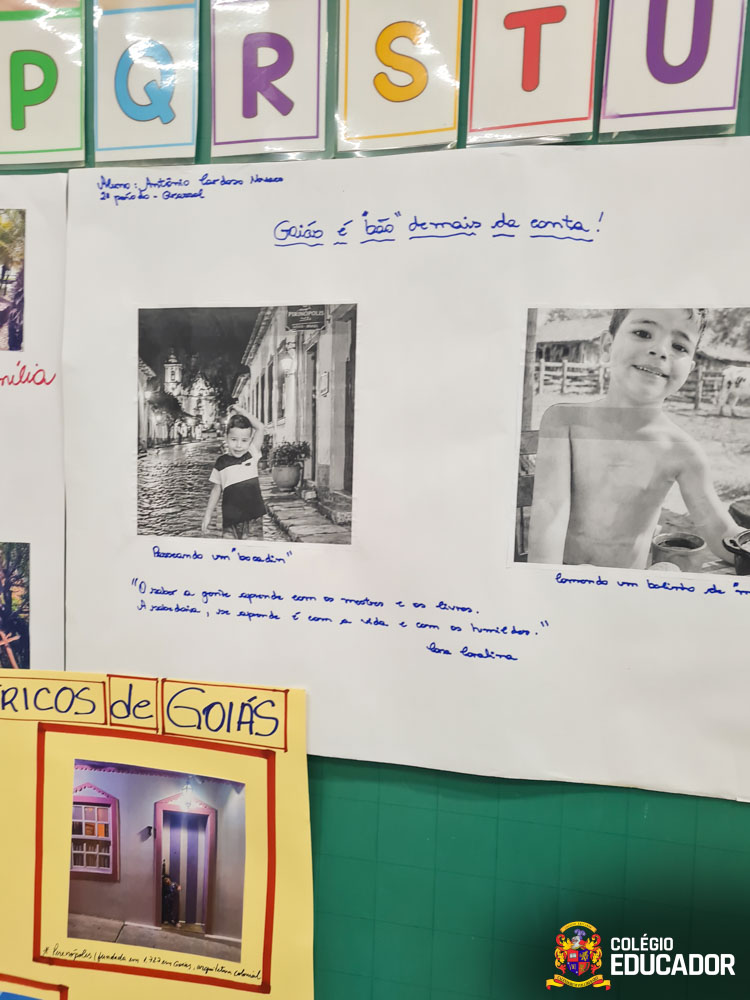 P Q R S T U
Aluno: Antônio Cardoso
2º período -
Goiás é "bão" demais da conta!
PIRENÓPOLIS
mília
Passeando um "bocadin"
Comendo um bolinho de "m
"O saber a gente aprende com os mestres e os livros.
A sabedoria, se aprende é com a vida e com os humildes."
Cora Coralina
RICOS de GOIÁS
* Pirenópolis (fundada em 1.727 em Goiás, arquitetura colonial
COLÉGIO
EDUCADOR